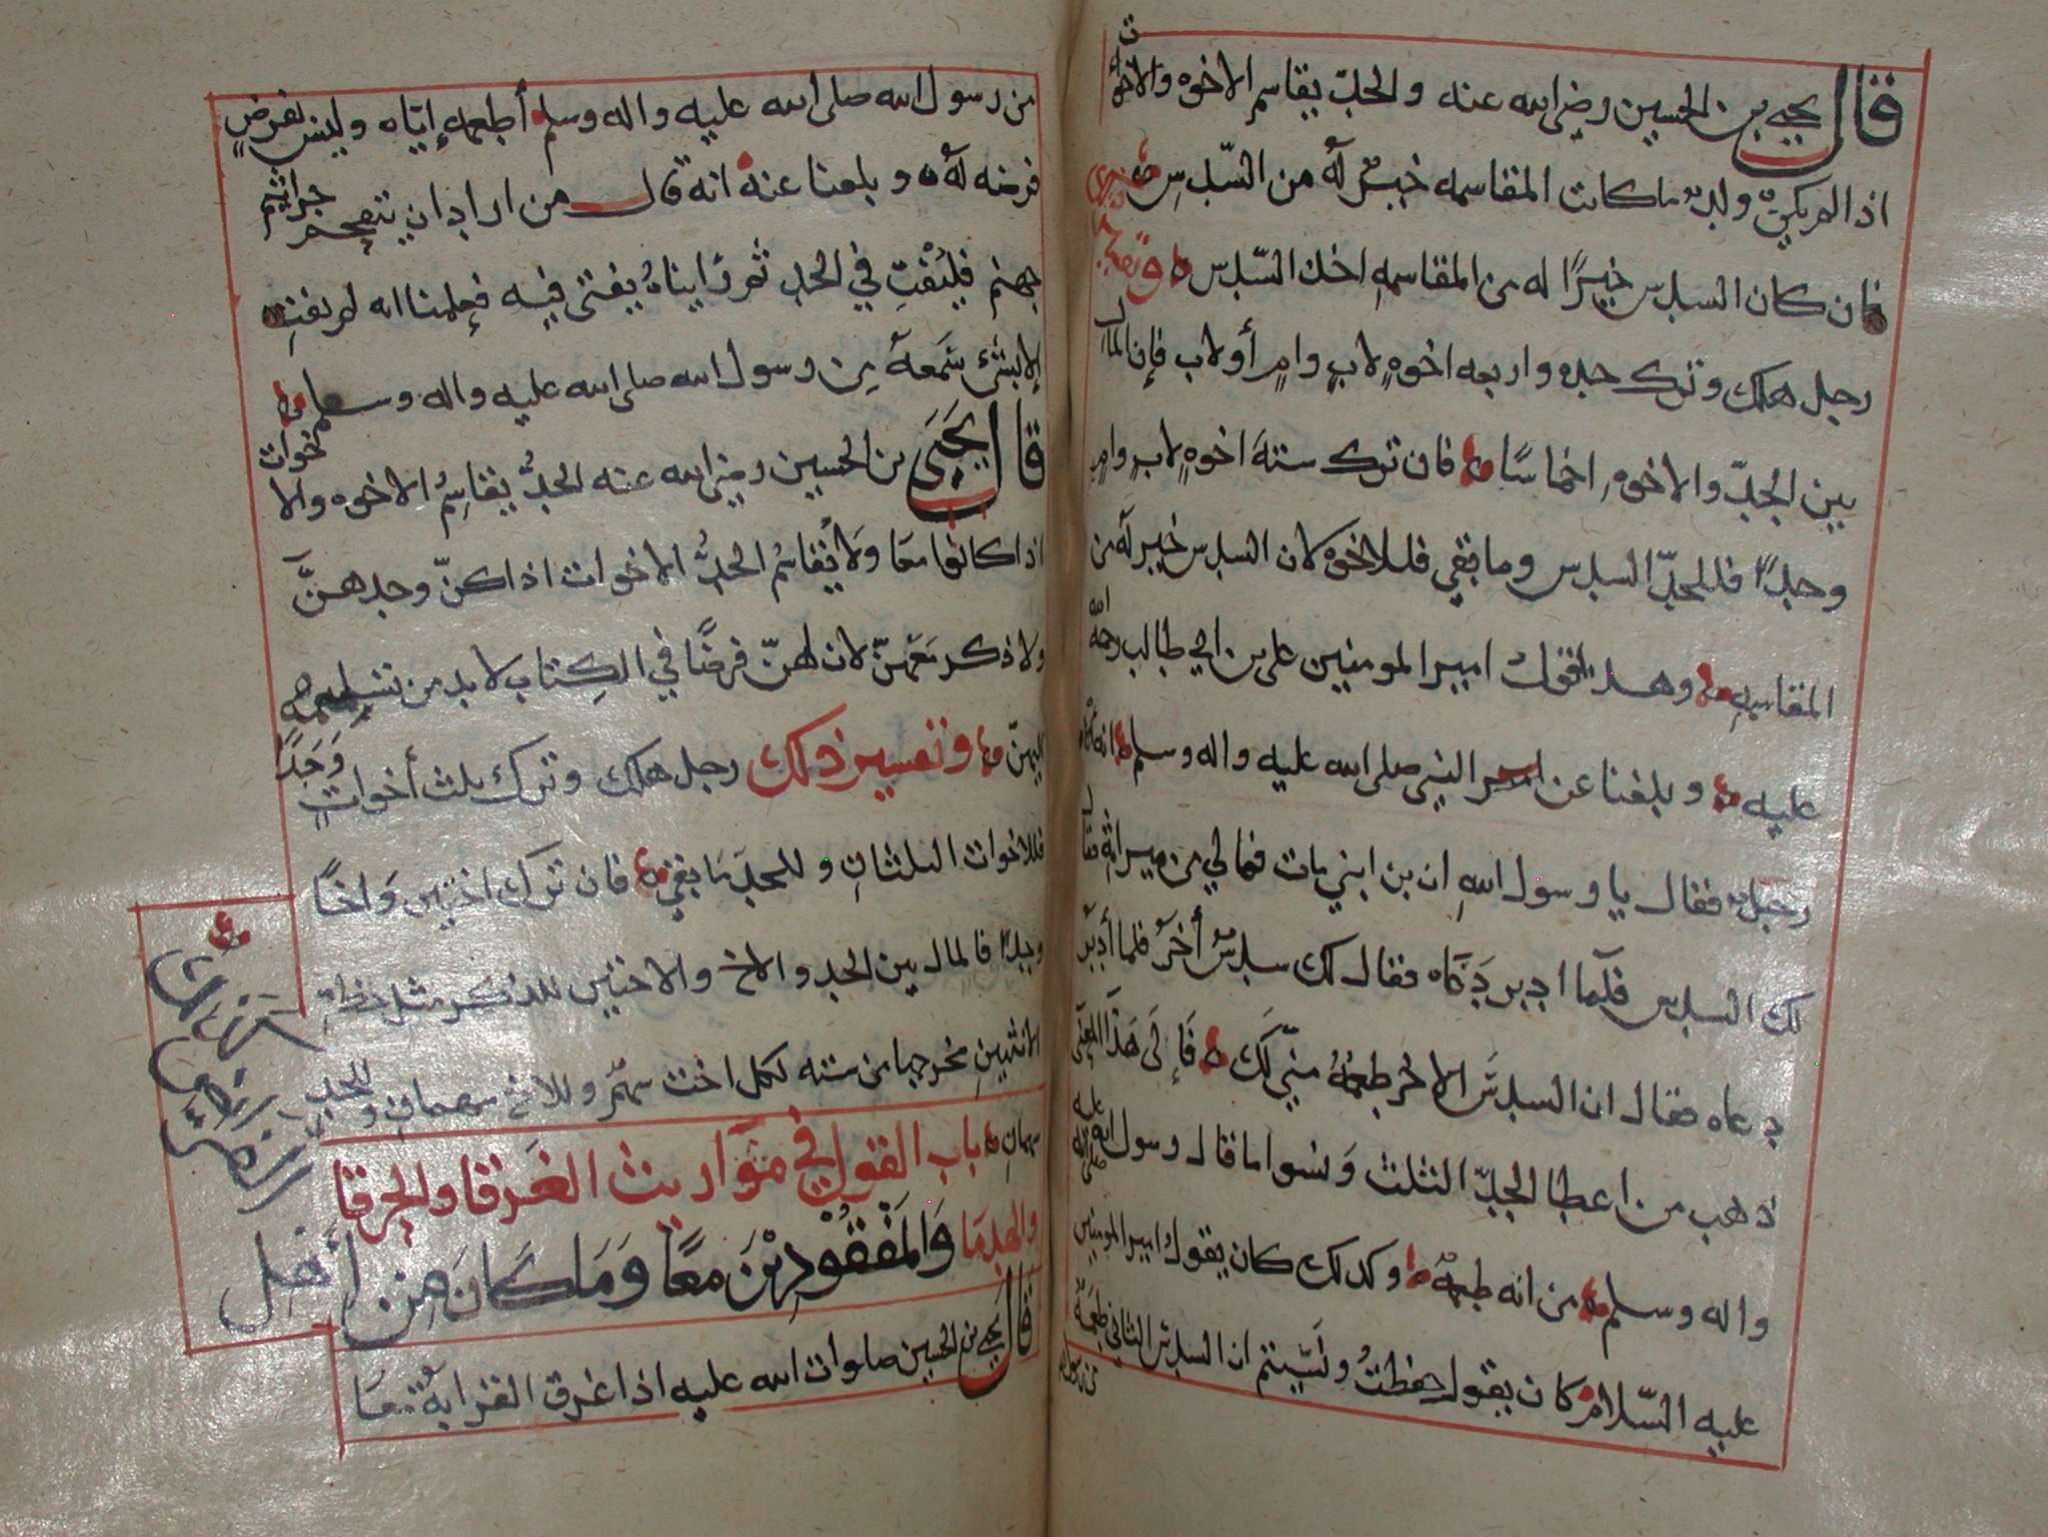 قال يحيى بن الحسين رضي الله عنه والجدّ يقاسم الاخوه والاخوات
اذا لم يكن ولد ما كانت المقاسمه خيرٌ لهُ من السّدسِ
فان كان السدس خيرًا له من المقاسمهِ اخذ السّدس وتفسير ذلك
رجل هلك وترك جده واربعه اخوهٍ لابٍ وامٍ أو لاب فإن المال
بين الجدّ والاخوهِ اخماسًا فان ترك ستة اخوهٍ لابٍ وامٍ
وجدًا فللجدّ السدس وما بقي فللاخوه لان السدس خير له من
المقاسمهِ وهذا قول امير المومنين علي بن ابي طالب رحمة الله
عليه وبلغنا عن النبي صلى الله عليه واله وسلم انه اتاه
رجل فقال يا رسول اللهِ ان بن ابني مات فمالي من ميراثهِ فقال
لك السدس فلمّا ادبر دَعَاه فقال لك سدسٌ أخرُ فلما أدبَر
دعاه فقال ان السدسَ الاخر طعمهُ منّي لكَ فَإِلَى هَذَا المعنى
ذهب من اعطا الجدّ الثلث وَنسوا ما قال رسول الله صلى الله عليه
واله وسلم من انه طعمهٌ وكذلك كان يقول امير المومنين
عليه السّلام كان يقول حفظتُ ونَسِيتم ان السدس الثاني طعمَةٌ
من رسول
من رسول الله صلى الله عليه واله وسلم أطعمه إيّاه وليس بفرضٍ
فرضه لهُ وبلغنا عنه انه قال من اراد ان يتقحم جراثيم
جهنم فليُفْتِ في الجدِ ثم رَايناهُ يفتى فيه فعلمنا انه لم يفتِ
إلا بشئ سَمعهُ مِن رسول الله صلى الله عليه واله وسلم
قال يَحيَى بن الحسين رضي الله عنه الجدُّ يقاسِمُ الاخوه والاخوات
اذا كانوا معَا وَلا يُقاسمُ الجدُّ الاخوات اذا كنّ وحدهنَّ
ولا ذكر مَعَهنّ لان لهنّ فرضًا في الكِتابِ لا بد من تسليمه
إليهنّ وتفسير ذلك رجل هلك وترك ثلث أخواتٍ وَجَدًا
فللاخوات الثلثانِ وللجدِ مَا بقي فان تَرَك اختينِ وَاخًا
وجدًا فالمال بين الجد والاخ والاختين للذكر مثل حظ
الانثيينِ مخرجها من سته لكل اخت سهمٌ وللاخ سهمانِ وللجد
سهمانِ باب القول في مَوَاريث الغَرقا والحرقا
والهدمَا وَالمَفْقُودِيْنَ معًا وَمَا كَانَ مِن أَهْلِ
قال يحيى بن الحسين صلوات الله عليه اذا غرق القرابهُ معَا